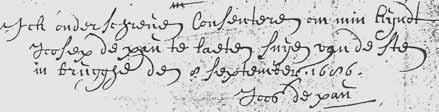 Ick onderschreuen Consenteren om min kijndt
Joosep de pau te laeten snijen van de sten
in brugghe den 8 september 1686.
Joos de pau